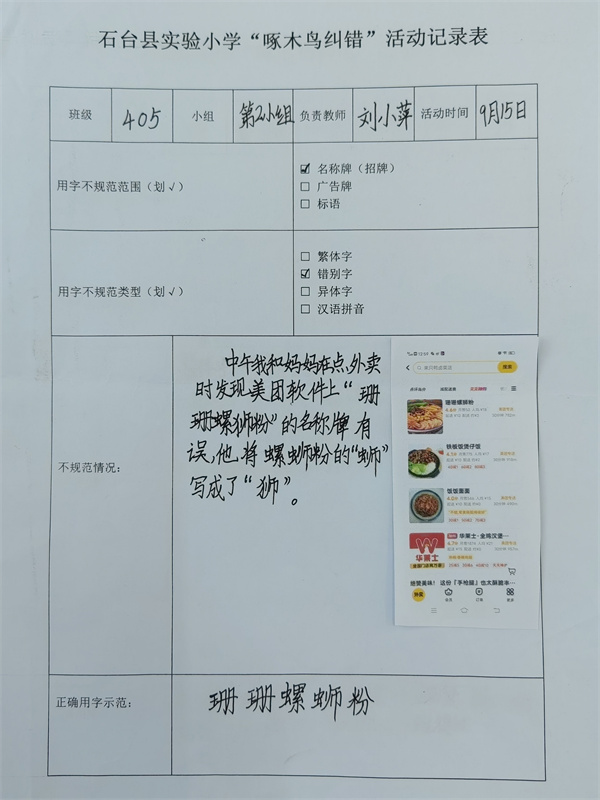 石台县实验小学“啄木鸟纠错”活动记录表
班级 405 小组 第2小组 负责教师 刘小萍 活动时间 9月15日
用字不规范范围（划√）
☑ 名称牌（招牌）
☐ 广告牌
☐ 标语
用字不规范类型（划√）
☐ 繁体字
☑ 错别字
☐ 异体字
☐ 汉语拼音
不规范情况：
中午我和妈妈在点外卖
时发现美团软件上“珊
珊螺狮粉”的名称牌有
误，他将螺蛳粉的“蛳”
写成了“狮”。
12:04
搜索
珊珊螺狮粉
铁板饭煲仔饭
饭饭面面
华莱士·金鸡汉堡…
华莱士
绝赞美味！ 这份「手枪腿」也太酥脆丰…
正确用字示范：
珊珊螺蛳粉